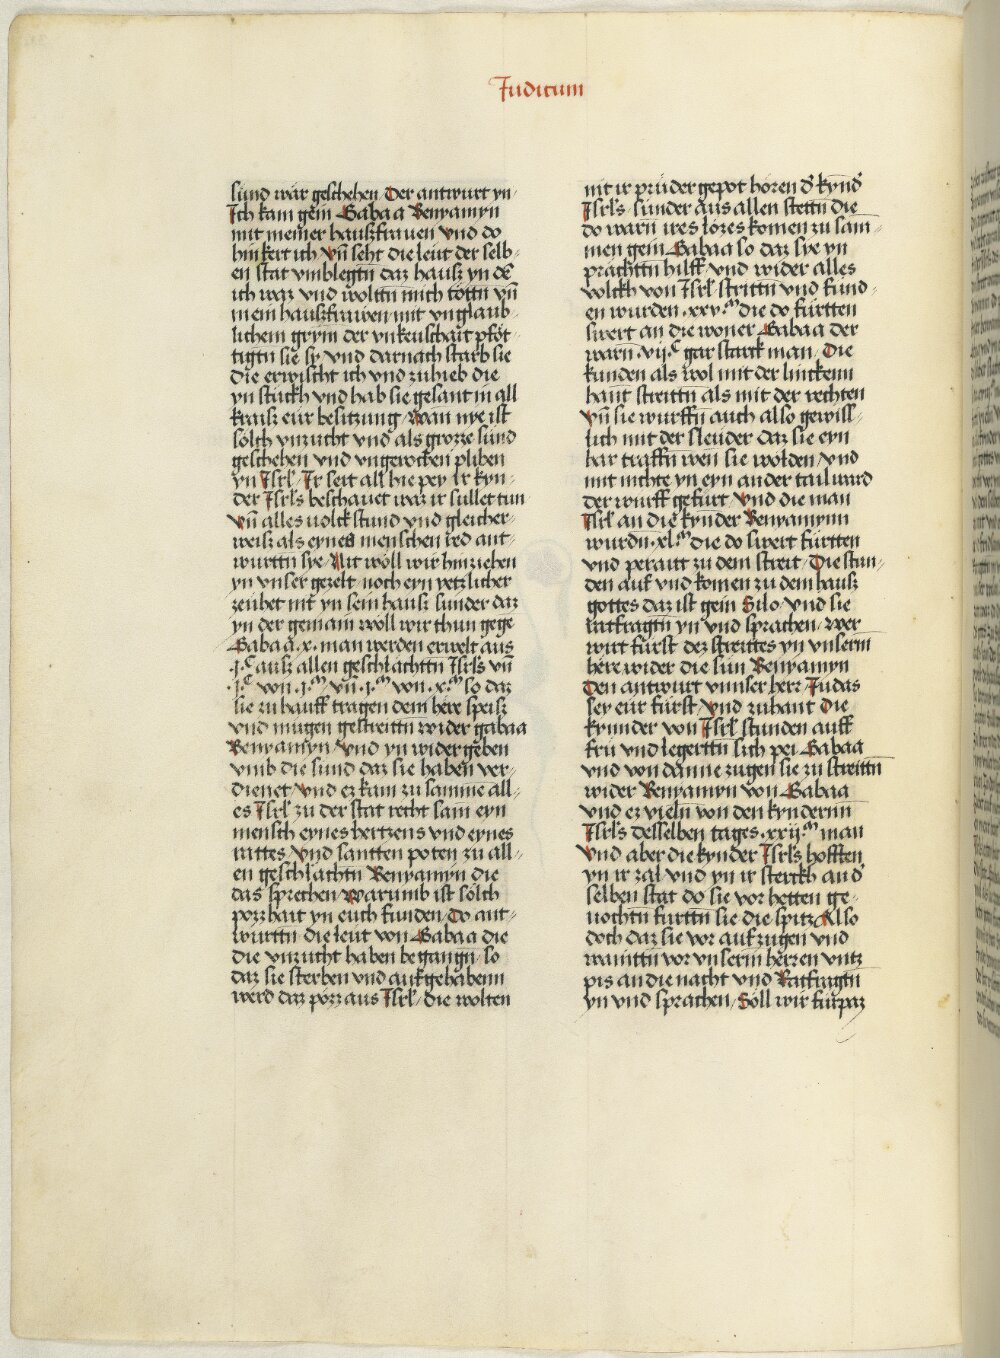 Juditum
sünd wär geschehen / Der antwurt yn⸗
Ich kam gein Gabaa Benyamyn
mit meiner hauszfrauen vnd do
hinkert ich / Vn̄ seht die leüt der selb⸗
en stat vmblegtn̄ daz hausz yn dē
ich waz vnd woltn̄ mich tottn̄ vn̄
mein hauszfrawen mit vnglaub⸗
lichem grym der vnkeuschait pföt⸗
tigtn sie sy / vnd darnach starb sie
die erwischt ich vnd zuhieb die
yn stückh vnd hab sie gesant in all
krausz eür besitzung / Wan nye ist
sölch vnzucht vnd als grozze sünd
geschehen vnd vngerochen pliben
yn Isrl̄ / Ir seit all hie pey Ir kyn⸗
der Isrl̄s beschauet waz ir süllet tun
Vn̄ alles volck stund vnd gleicher⸗
weisz als eynes menschen red ant⸗
wurttn sye / Nit wöll wir hinziehen
yn vnser gezelt / noch eyn yetzlicher
zeühet nit yn sein hausz sunder daz
yn der gemain wöll wir thun gege
Gabaa .x. man werden erwelt aus
.j.c ausz allen geschlächttn Isrl̄s vn̄
.j.c von .j.m vn̄ .j.m von .x.m so daz
sie zu hauff tragen dem here speisz
vnd mügen gestreittn wider gabaa
Benyamyn / vnd yn wider geben
vmb die sünd daz sie haben ver⸗
dienet / Vnd ez kam zu samme all⸗
es Isrl̄ zu der stat recht sam eyn
mensch eynes hertzens vnd eynes
rattes / Vnd santten poten zu all⸗
en geschlächtn̄ Benyamyn die
das sprechen / Warumb ist sölch
pozzhait yn euch funden / Do ant⸗
wurttn die leüt von Gabaa die
die vnzucht haben begangn̄ / so
daz sie sterben vnd aufgehabenn
werd daz pözz aus Isrl̄ / die wolten
nit ir prüder gepot hören d̕ kynd̕
Isrl̄s / sünder aus allen stettn̄ die
do warn̄ ires lozes komen zu sam⸗
men gein Gabaa so daz sye yn
prächttn̄ hilff / vnd wider alles
volckh von Isrl̄ strittn̄ vnd fund⸗
en wurden .xxv.m die do fürtten
swert an die woner Gabaa der
warn .vij.c gar starck man / Die
kunden als wol mit der linckenn
hant streittn̄ als mit der rechten
Vn̄ sie wurffn̄ auch also gewisz⸗
lich mit der sleüder daz sie eyn
har traffn̄ wen sie wolden / vnd
mit nichte yn eyn ander tail ward
der wurff gefürt / Vnd die man
Isrl̄ an die kynder Benyamynn
wurdn .xl.m die do swert fürtten
vnd perait zu dem streit / Die stun⸗
den auf vnd komen zu dem hausz
gottes daz ist gein Silo / vnd sie
ratfragtn̄ yn vnd sprachen / wer
wirt fürst dez streittes yn vnserm
here wider die sün Benyamyn
Den antwurt vnnser herr / Judas
sey eür fürst / Vnd zuhant die
kynnder von Isrl̄ stunden auff
frü vnd legerttn̄ sich pei Gabaa
vnd von danne zugen sie zu streittn̄
wider Benyamyn von Gabaa
vnd ez vieln̄ von den kyndernn̄
Isrl̄s desselben tages .xxij.m man
Vnd aber die kynder Isrl̄s hofften
yn ir zal vnd yn ir sterckh an d̕
selben stat do sie vor hetten ge⸗
uochtn̄ furttn̄ sie die spitz / Also
doch daz sie vor auf zugen vnd
waintt̄n vor vnserm herren vntz
pis an die nacht vnd Ratfragtn̄
yn vnd sprachen / Söll wir fürpaz